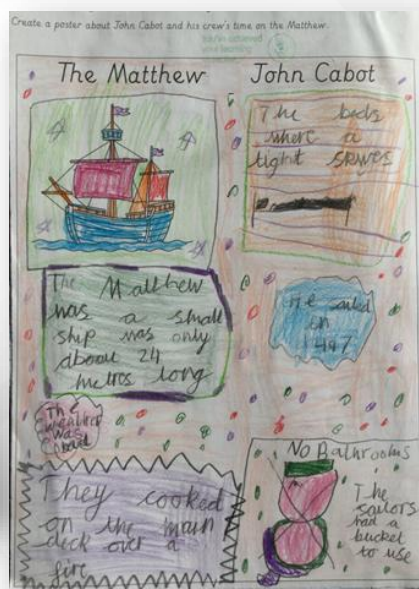 Create a poster about John Cabot and his crew's time on the Matthew.
The Matthew
John Cabot
The beds
where a
tight
The Matthew
was a small
ship was only
about 24
metres long
He sailed
in
1497
The
was
They cooked
on the main
deck over a
fire
No Bathrooms
The
sailors
had a
bucket
to use